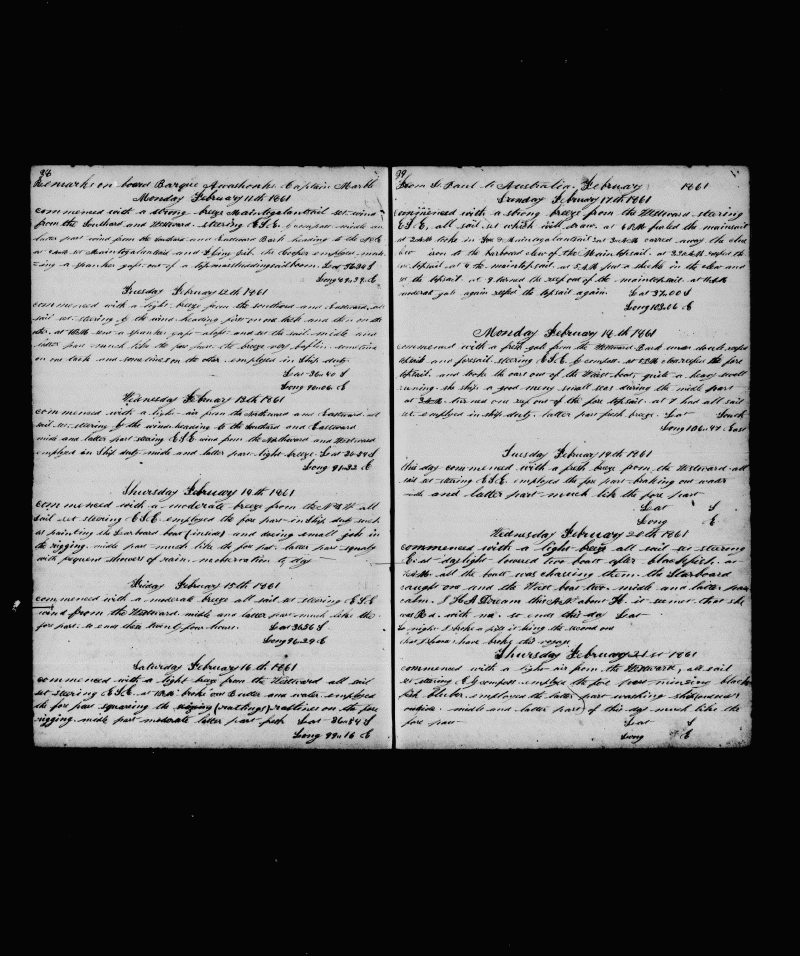 98
Remarks on board Barque Awashonks Captain Marble
Monday February 11th 1861
commenced with a strong breeze Main topgalantsail set wind
from the Southard and Westward steering E.S.E. by compass midle an
later part wind from the Southard and Eastward Bark heading to the
at set Maintopgalantsail and Flying jib. the Cooper employed mak
=ing a spanker gaff out of a topmaststudingsailboom. Lat 36.34 S
Long 89.39 E
Tuesday February 12th 1861
commenced with a light breeze from the Southard and Eastward. all
sail set steering by the wind heading first on one tack and then on the
other. at sent a spanker gaff aloft and set the sail. midle and
latter part much like the fore part. the breeze very baffling sometimes
on one tack and sometimes on the other. employed in Ship duty
Lat 36.40 S
Long 90.06 E
Wednesday February 13th 1861
commenced with a light air from the Southard and Eastward all
sail set steering by the wind heading to the Southard and Eastward
midle and latter part steering E.S.E wind from the Northward and Westward
employed in Ship duty midle and latter part light breeze Lat 36.54 S
Long 91.32 E
Thursday February 14th 1861
commenced with a moderate breeze from the N.W. all
sail set steering E.S.E. employed the fore part in Ship duty such
as painting the Larboard boat (inside) and doeing small jobs in
the rigging. midle part much like the fore part. latter part squaly
with frequent showers of rain. no observation to day
Friday February 15th 1861
commenced with a moderate breeze all sail set steering E.S.E
wind from the Westward. midle and latter part much like the
fore part. so ends these twenty four hours. Lat 36.56 S
Long 96.29 E
Saturday February 16th 1861
commenced with a light breeze from the Westward all sail
set steering E.S.E. at broke out Butter and water. employed
the fore part squaring the rigging (ratlings) ratlines on the fore
rigging. midle part moderate latter part fresh Lat 36.54 S
Long 99.16 E
99
From St Paul to Australia, February 1861
Sunday February 17th 1861
commenced with a strong breeze from the Westward steering
E.S.E. all sail set which will draw. at 6 P.M. furled the mainsail
at took in Fore & Main topgalantsail at carried away the clew
iron to the larboard clew of the Main topsail. at reefed the
topsail. at 4 the maintopsail. at put a shackle in the clew and
set the topsail. at 9 turned the reef out of the maintopsail. at
gale again reefed the topsail again. Lat 37.00 S
Long 103.06 E
Monday February 18th 1861
commenced with a fresh gale from the Westward Bark under double reefed
topsail and foresail steering E.S.E. by compass. at close reefed the fore
topsail. and took the oars out of the Waist boat, quite a heavy swell
runing. she ship a good meny small seas during the midle part
at turned one reef out of the fore topsail. at 7 had all sail
set. employed in ship duty. latter part fresh breeze. Lat South
Long 106.47 East
Tuesday February 19th 1861
this day commenced with a fresh breeze from the Westward all
sail set steering E.S.E. employed the fore part braking out water
midle and latter part much like the fore part
Lat S
Long E
Wednesday February 20th 1861
commenced with a light breeze all sail set steering
E. at daylight lowered two boats after blackfish. at
all the boats was chaseing them. the Starboard
caught one and the Waist boat two. midle and latter part
calm. I H A Dream this about H. it seemes that she
was with me. so ends this day Lat
to night I broke a pipe it being the second one
that I have broke this voyage
Thursday February 21st 1861
commenced with a light air from the Westward, all sail
set steering E by compass. employed the fore part minsing black
fish blubber. employed the latter part washing ship
outside. midle and latter part) of this day much like the
fore part Lat S
Long E